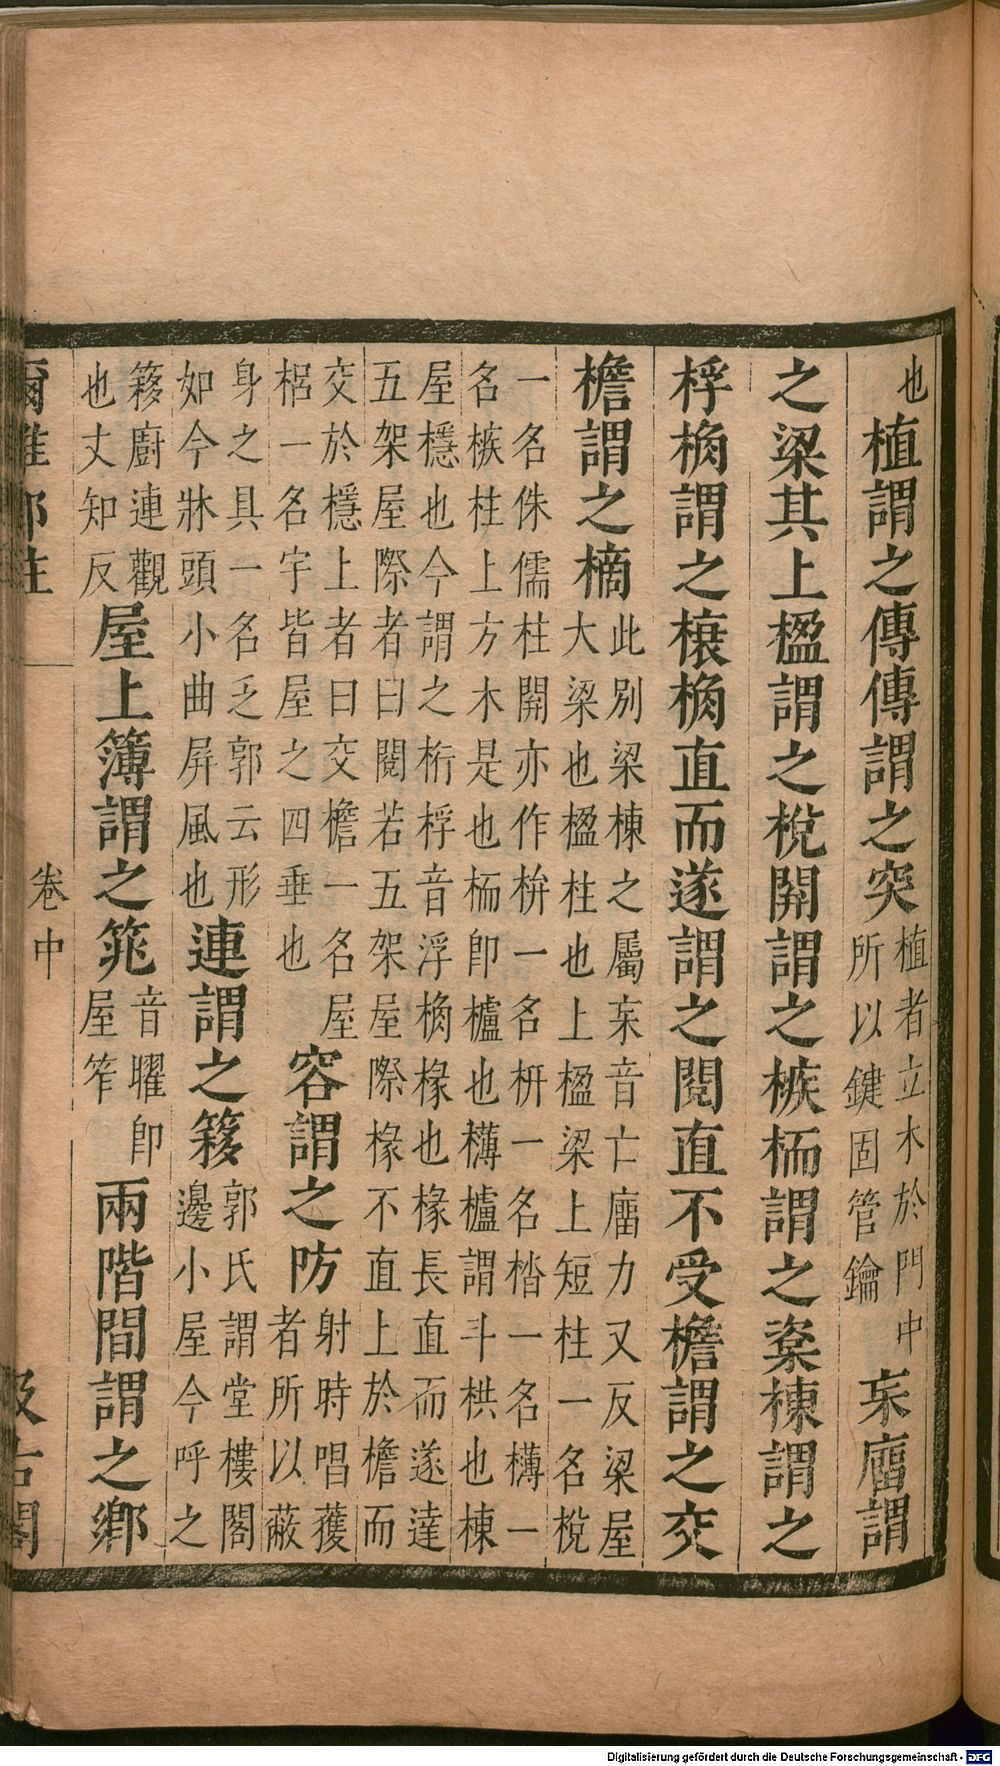 也植謂之傳傳謂之突植者立木於門中所以鍵固管鑰杗廇謂
之梁其上楹謂之梲開謂之槉栭謂之楶棟謂之
桴桷謂之榱桷直而遂謂之閱直不受檐謂之交
檐謂之樀此別梁棟之屬杗音亡廇力又反梁屋大梁也楹柱也上楹梁上短柱一名梲
一名侏儒柱開亦作栟一名枅一名一名欂一名槉柱上方木是也栭即櫨也欂櫨謂斗栱也棟
屋檼也今謂之桁桴音浮桷椽也椽長直而遂達五架屋際者曰閱若五架屋際椽不直上於檐而
交於檼上者曰交檐一名屋梠一名宇皆屋之四垂也容謂之防射時唱獲者所以蔽
身之具一名乏郭云形如今牀頭小曲屏風也連謂之簃郭氏謂堂樓閣邊小屋今呼之
簃廚連觀也丈知反屋上簿謂之筄音曜即屋笮兩階間謂之鄉
爾雅鄭註 卷中 汲古閣
Digitalisierung gefördert durch die Deutsche Forschungsgemeinschaft - DFG